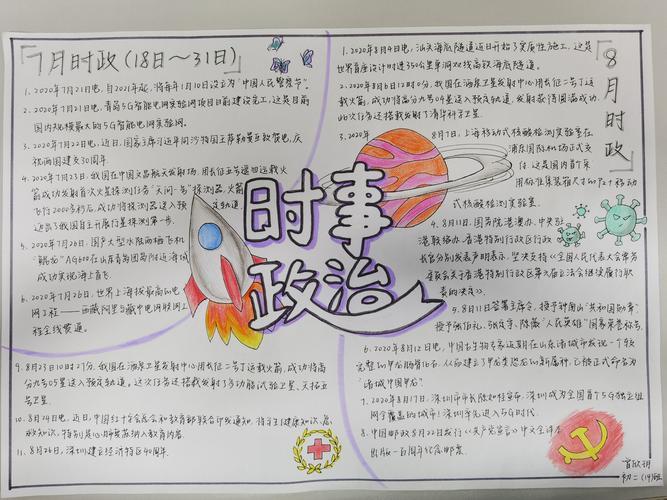 「7月时政(18日～31日)」
1. 2020年7月21日电，自2021年起，将每年1月10日设立为"中国人民警察节"。
2. 2020年7月21日电，青岛5G智能电网实验网项目日前建设完工，这是目前
国内规模最大的5G智能电网实验网。
3. 2020年7月22日电，近日，国家主席习近平同沙特国王萨勒曼互致贺电，庆
祝两国建交30周年。
4. 2020年7月23日，我国在中国文昌航天发射场，用长征五号遥四运载火
箭成功发射首次火星探测任务"天问一号"探测器，火箭
飞行2000多秒后，成功将探测器送入预定轨道，
迈出了我国自主开展行星探测第一步。
5. 2020年7月26日，国产大型水陆两栖飞机
"鲲龙"AG600在山东青岛团岛附近海域
成功实现海上首飞。
6. 2020年7月26日，世界上海拔最高的电
网工程——西藏阿里与藏中电网联网工
程全线贯通。
时事
政治
「8月时政」
1. 2020年8月4日电，汕头海底隧道近日开始了实质性施工，这是
世界首座设计时速350公里单洞双线高铁海底隧道。
2. 2020年8月6日12时0分，我国在酒泉卫星发射中心用长征二号丁运
载火箭，成功将高分九号04星送入预定轨道，发射获得圆满成功。
此次任务还搭载发射了清华科学卫星。
3. 2020年8月7日，上海移动式核酸检测实验室在
浦东国际机场正式交
付，这是国内首个采
用标准集装箱尺寸的P2+移动
式核酸检测实验室。
4. 8月11日，国务院港澳办、中央驻
港联络办、香港特别行政区行政
长官分别发表声明表示，坚决支持《全国人民代表大会常务
委员会关于香港特别行政区第六届立法会继续履行职
责的决定》。
5. 8月11日签署主席令，授予钟南山"共和国勋章"，
授予张伯礼、张定宇、陈薇"人民英雄"国家荣誉称号。
6. 2020年8月12日电，中国古生物专家近期在山东诸城市发现一个较
完整的甲龙肠骨化石，从而建立了甲龙类恐龙的新属种，已被正式命名为
"诸城中国甲龙"。
7. 2020年8月17日，深圳市市长陈如桂宣布，深圳成为全国首个5G独立组
网全覆盖的城市，深圳率先进入5G时代。
8. 中国邮政8月22日发行《共产党宣言》中文全译本
出版一百周年纪念邮票。
9. 8月23日10时27分，我国在酒泉卫星发射中心用长征二号丁运载火箭，成功将高
分九号05星送入预定轨道，这次任务还搭载发射了多功能试验卫星、天拓五
号卫星。
10. 8月24日电，近日，中国红十字会总会和教育部联合印发通知，将学生健康知识、急
救知识，特别是心肺复苏纳入教育内容。
11. 8月26日，深圳建立经济特区40周年。
初二(19)班